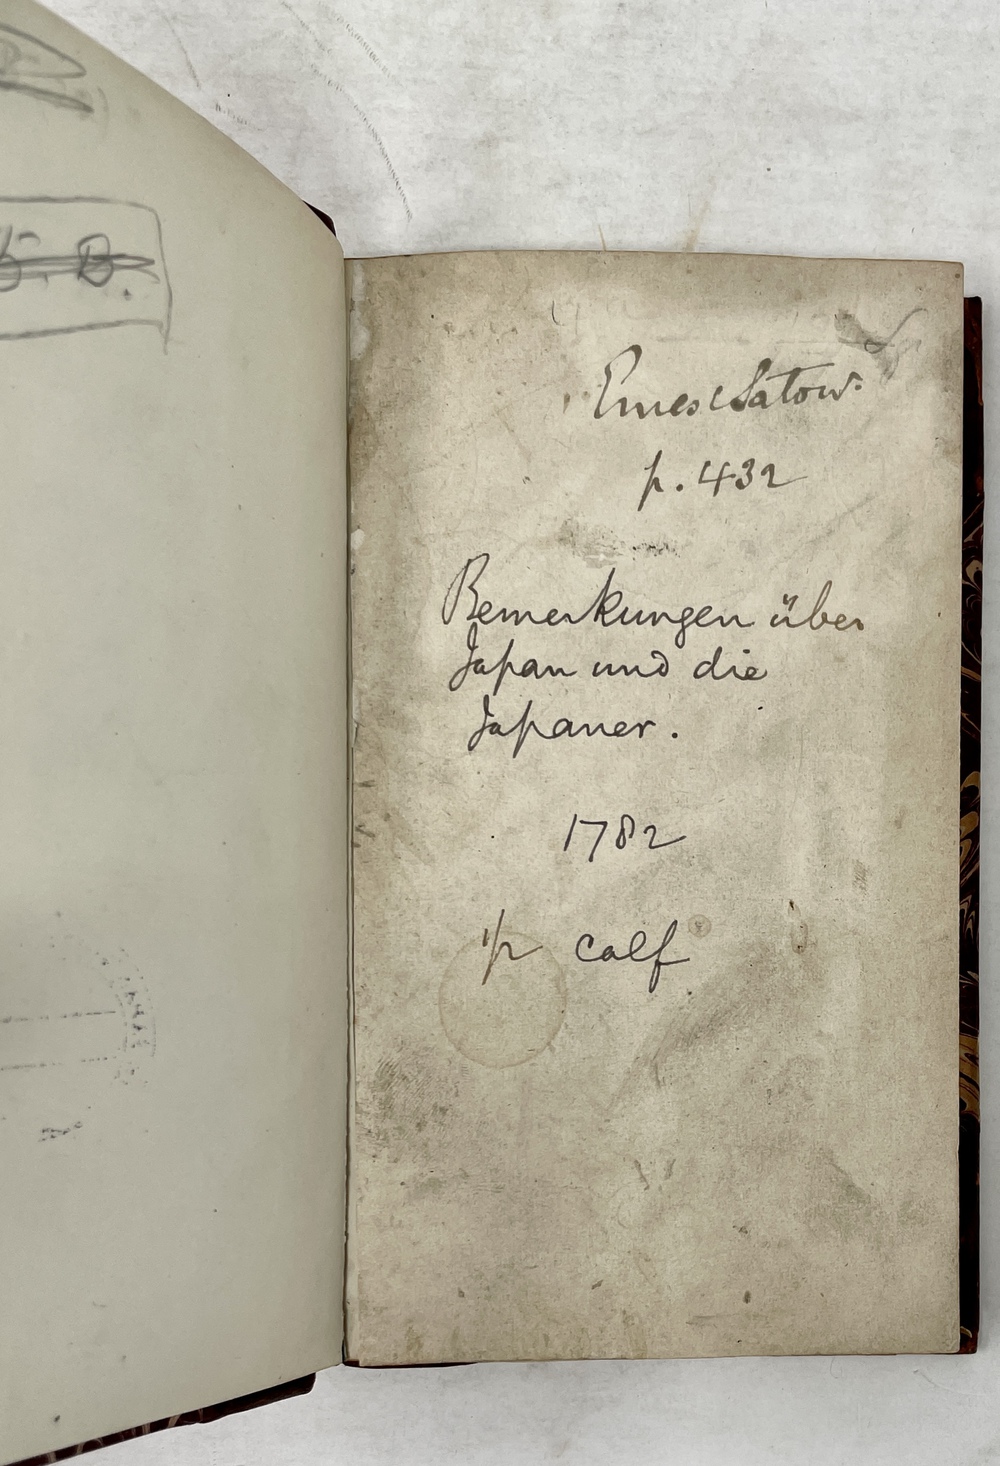 B.
Ernest Satow.
p. 432
Bemerkungen über
Japan und die
Japaner.
1782
1/2 calf